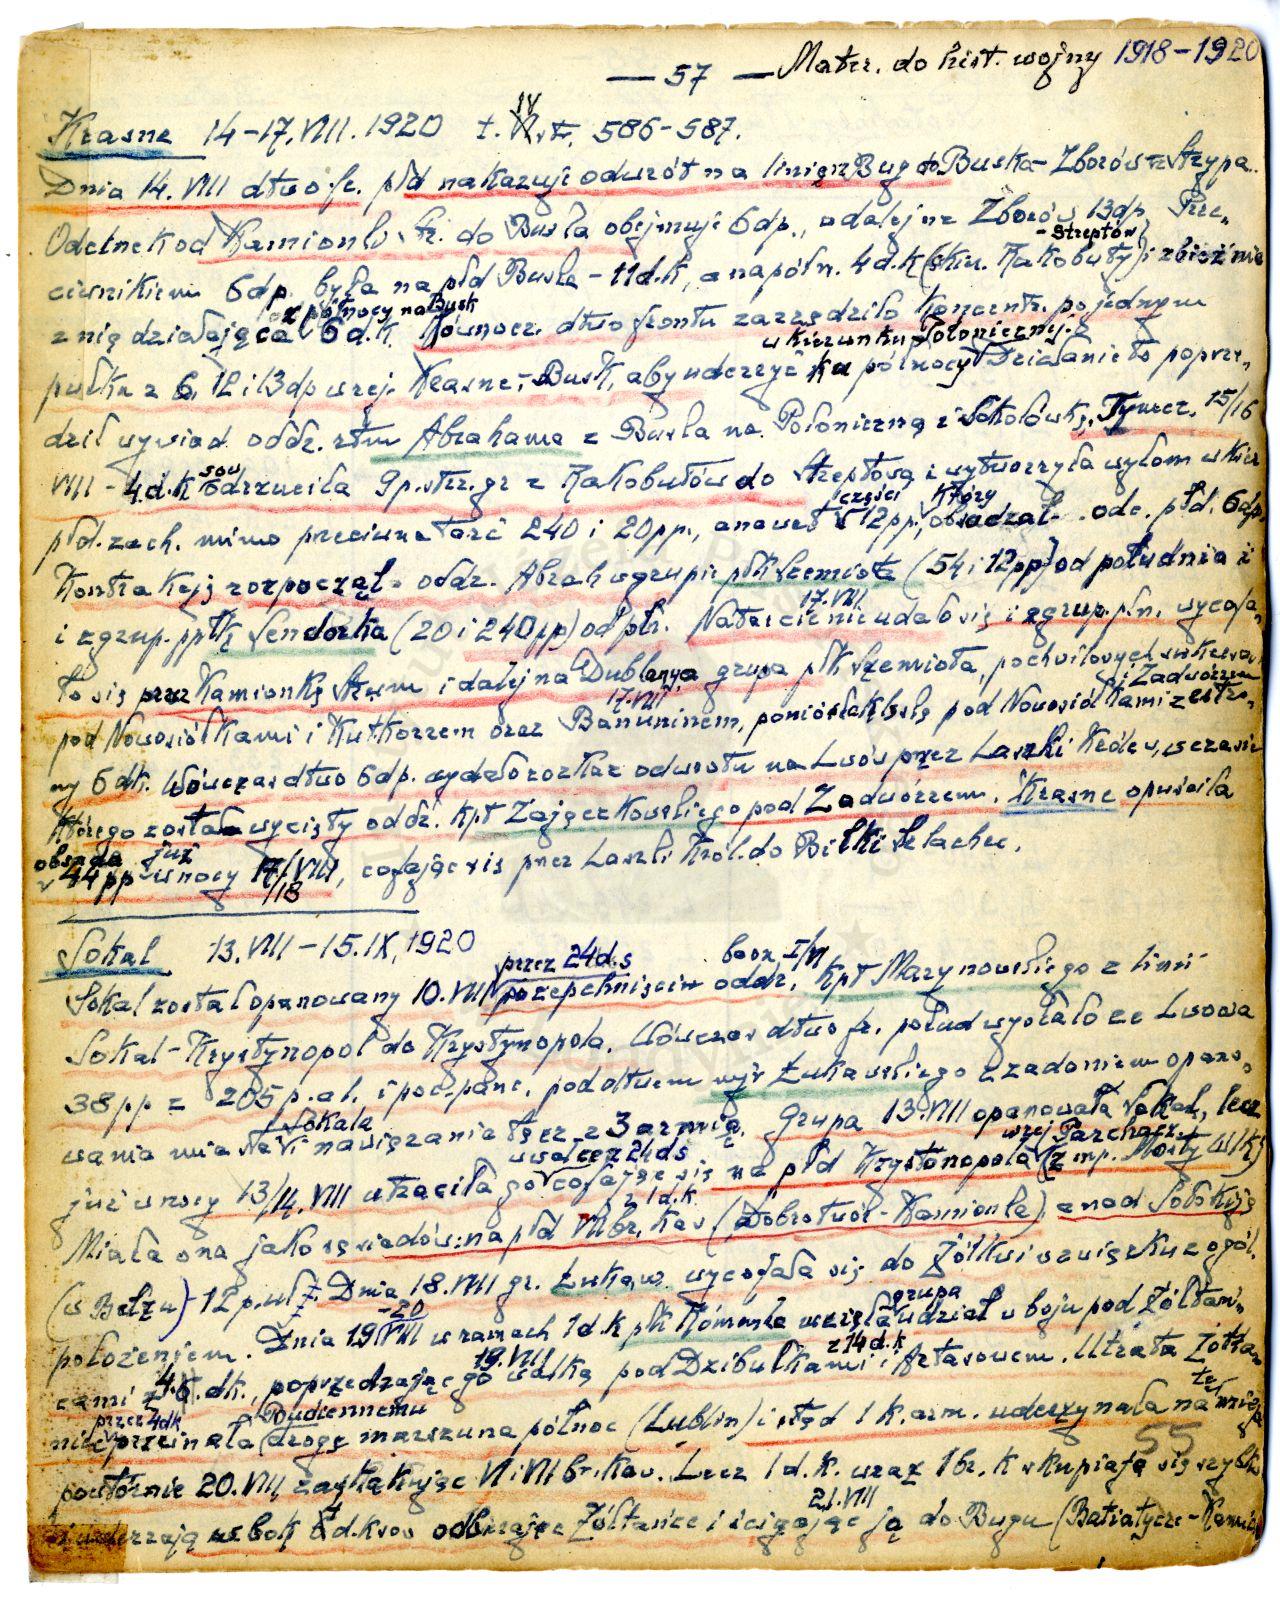 — 57 — Matrr. do hist. wojny 1918-1920
Krasne 14-17.VIII.1920 t. IV str. 586-587.
Dnia 14.VIII dtwo fr. płd nakazuje odwrót na linię Bug do Buska-Zborów-Strypa.
Odcinek od Kamionki Str. do Buska obejmuje 6dp., a dalej na Zborów 13dp. Prze-
ciwnikiem 6dp. była na płd Buska - 11 d.k, a na półn. 4 d.k (skier. Rakobuty - Streptów) i zbieżnie
z nią działająca z północy na Busk 6 d.k. Równocz. dtwo frontu zarządziło koncentr. po jednym
pułku z 6, 12 i 13dp w rej. Krasne-Busk, aby uderzyć ku północy w kierunku Połonicznej. Działanie to poprze-
dził wywiad oddz. rtm Abrahama z Buska na Połoniczną i Sokołówkę. Tymcz. 15/16
VIII - 4.d.k sow odrzuciła 9p.str.gr z Rakobutów do Streptowa i wytworzyła wyłom w kier
płd.zach. mimo przeciwnatarć 240 i 20pp., a nawet części 12pp, który obsadzał odc. płd. 6dp.
Kontrakcję rozpoczął oddz. Abrah w grupie płk Szemiota (54 i 12pp) od południa i
i zgrup. ppłk Sendorka (20 i 240pp) od płn. Natarcie nie udało się 17.VIII i zgrup. płn. wycofa-
ło się przez Kamionkę Strum i dalej na Dublany, a grupa płk Szemiota, po chwilowych sukcesach
pod Nowosiółkami i Kutkorzem oraz Banuninem, 17.VIII poniosła klęskę pod Nowosiółkami i Zadwórzem ze stro-
ny 6 dk. Wówczas dtwo 6dp. wydało rozkaz odwrotu na Lwów przez Laszki Król., w czasie
którego został wycięty oddz. kpt Zajączkowskiego pod Zadwórzem. Krasne opuściła
obsada 44pp już w nocy 17/18 VIII, cofając się przez Laszki Król. do Biłki Szlachec.
Sokal 13.VIII-15.IX.1920
Sokal został opanowany 10.VIII przez 24d.s po zepchnięciu oddz. kpt Marynowskiego z linii
Sokal-Krystynopol do Krystynopola. Wówczas dtwo fr. połud wysłało ze Lwowa
38pp z 205 p.al. i poc.panc. pod dtwem mjr Łukawskiego z zadaniem opano-
wania miasta Sokala i nawiązania łącz. z 3 armią. Grupa 13.VIII opanowała Sokal, lecz
już w nocy 13/14.VIII utraciła go walcząc z 24ds cofając się na płd Krystynopola w rej Parchacz (z mp. Mosty Wlk)
Miała ona jako sąsiadów: na płd VI br. kav z 1d.k (Dobrotwór-Kamionka) a nad Sołokiją
(w Bełzu) 12 p.uł. Dnia 18.VIII gr. Łukaw. wycofała się do Żółkwi w związku z ogól.
położeniem. Dnia 19-20 VIII w ramach 1d.k płk Rómmla wzięła grupa udział w boju pod Żółtań-
cami z 4.6.dk., poprzedzającego walkę 19.VIII pod Dzibułkami i Artasowem z 14d.k. Utrata Żółta-
niec przez 4dk przecinała Budiennemu drogę marszu na północ (Lublin) i stąd 1 k.arm. uderzyła na tę miejsc
powtórnie 20.VIII zaskakując VI i VII br.kav. Lecz 1 d.k. wraz 1br. k skupiają się szybko
i uderzają w bok 4 d.k sow odbierając Żółtańce i ścigając ją 21.VIII do Bugu (Batiatycze-Kamion
55